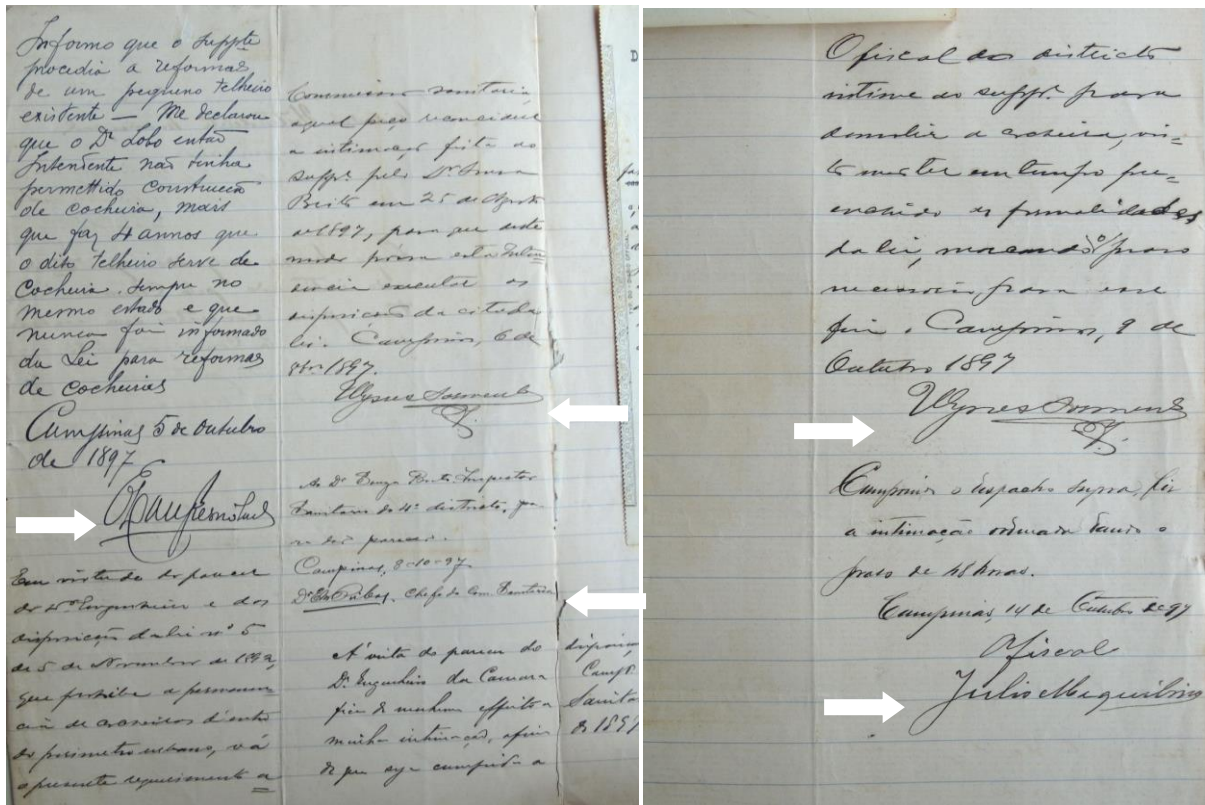 Informo que o suppte
procedia a reformas
de um pequeno telheiro
existente — Me declarou
que o Dr Lobo então
Intendente não tinha
permettido construcção
de cocheira, mais
que faz 4 annos que
o dito telheiro serve de
Cocheira. sempre no
mesmo estado e que
nunca foi informado
da Lei para reformas
de cocheiras
Campinas 5 de Outubro
de 1897
Em virtude do parecer
do Dr Engenheiro e das
disposição da lei nº 5
de 5 de Novembro de
que prohibe a permanen
cia de cocheiras dentro
do perimetro urbano, vá
o presente requerimento a
Commissão Sanitaria,
a qual peço reconsiderar
a intimação feita ao
suppe. pelo Dr Souza
Brito em 25 de Agosto
de 1897, para que deste
modo possa esta Inten
dencia executar as
disposição da citada
lei. Campinas, 6 de
8bro 1897.
Ulysses Sarmento
Ao Dr Souza Brito Inspector
Sanitario do 4º districto, pa-
ra dar parecer.
Campinas, 8-10-97
Dr Ribas, Chefe da Com. Sanitaria
Á vista do parecer do
Dr. Engenheiro da Camara
fica de nenhum effeito a
minha intimação, afim
de que seja cumprida a
disposição
Camps.
Sanita
de 1897
O fiscal do districto
intime ao suppe. para
demolir a cocheira, vis-
to não ter em tempo pre-
enchido as formalidades
da lei, marcando o praso
necessario para esse
fim. Campinas, 9 de
Outubro 1897
Ulysses Sarmento
o despacho supra, fiz
a intimação ordenada dando o
praso de 48 horas.
Campinas, 14 de Outubro de 97
O fiscal
Julio